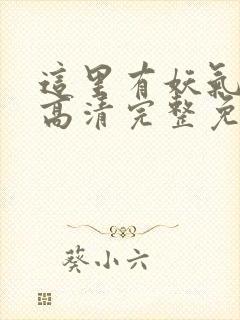 這里有妖氣
高清完整免
葵小六